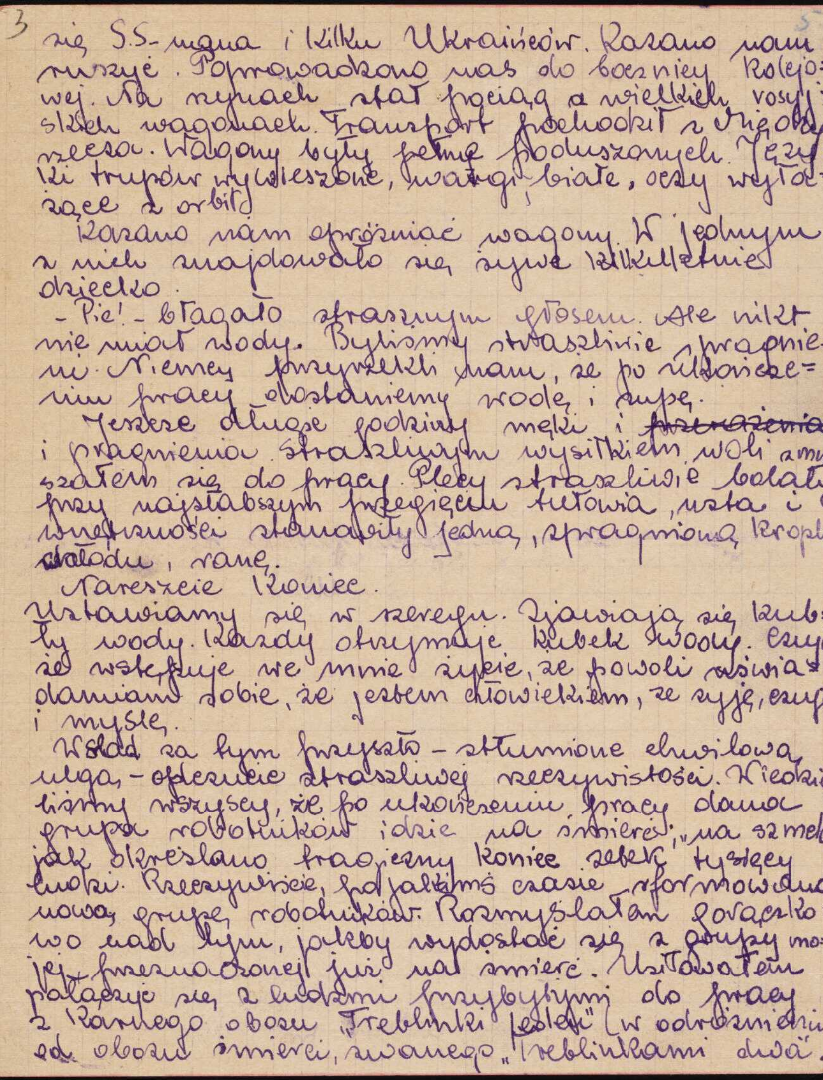 3 5
się S.S-mana i kilku Ukraińców. Kazano nam
ruszyć. Poprowadzono nas do bocznicy kolejo=
wej. Na szynach stał pociąg z wielkich rosyj
skich wagonach. Transport pochodził z Między
rzecza. Wagony były pełne poduszonych. Języ
ki trupów wywieszone, wargi białe, oczy wyłać
żące z orbit.
Kazano nam opróżniać wagony. W jednym
z nich znajdowało się żywe kilkuletnie
dziecko.
- Pić! - błagało strasznym głosem. Ale nikt
nie miał wody. Byliśmy straszliwie spragnie-
ni. Niemcy przyrzekli nam, że po ukończe=
niu pracy dostaniemy wodę i zupę.
Jeszcze długie godziny męki i przerażenia
i pragnienia. Straszliwym wysiłkiem woli zmu
szałem się do pracy. Plecy straszliwie bolały
przy najsłabszym przegięciu tułowia, usta i
wnętrzności stanowiły jedną, spragnioną kropli
chłodu, ranę.
Nareszcie koniec.
Ustawiamy się w szeregu. Zjawiają się kub-
ły wody. Każdy otrzymuje kubek wody. Czuję
że wstępuje we mnie życie, że powoli uświa=
damiam sobie, że jestem człowiekiem, że żyję, czuję
i myślę.
W ślad za tym przyszło - stłumione chwilową
ulgą - odczucie straszliwej rzeczywistości. Wiedzie
liśmy wszyscy, że po ukończeniu pracy dana
grupa robotników idzie na śmierć, "na szmelc
jak określano tragiczny koniec setek tysięcy
ludzi. Rzeczywiście, po jakimś czasie sformowano
nową grupę robotników. Rozmyślałem gorączko
wo nad tym, jakby wydostać się z grupy mo
jej przeznaczonej już na śmierć. Usiłowałem
połączyć się z ludźmi przybyłymi do pracy
z karnego obozu "Treblinki jeden" (w odróżnieniu
od obozu śmierci, zwanego "Treblinkami dwa".